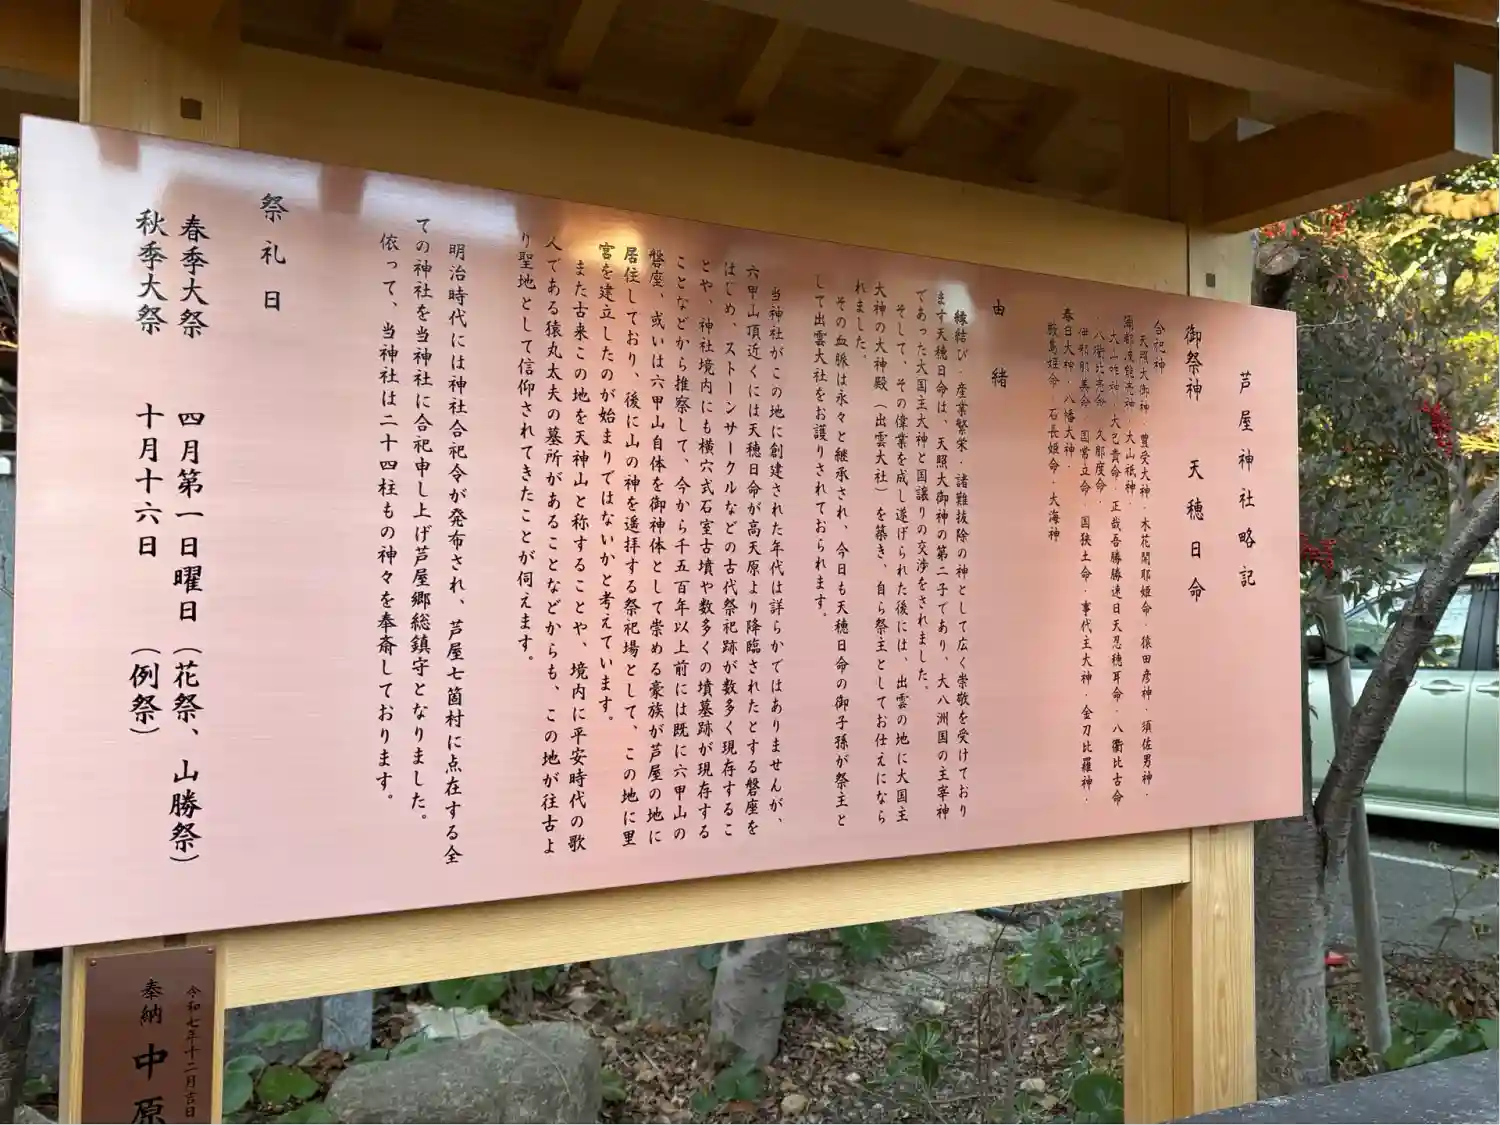 芦屋神社略記
御祭神　天穂日命
合祀神
天照大御神・豊受大神・木花開耶姫命・猿田彦神・須佐男神・
大山祇神・
大山咋神・大己貴命・正哉吾勝勝速日天忍穂耳命・八衢比古命
・八衢比売命・久那度命・
伊邪那美命・国常立命・国狭土命・事代主大神・金刀比羅神・
春日大神・八幡大神・
厳島姫命・石長姫命・大海神
由緒
縁結び・産業繁栄・諸難抜除の神として広く崇敬を受けており
ます天穂日命は、天照大御神の第二子であり、大八洲国の主宰神
であった大国主大神と国譲りの交渉をされました。
そして、その偉業を成し遂げられた後には、出雲の地に大国主
大神の大神殿（出雲大社）を築き、自ら祭主としてお仕えになら
れました。
その血脈は永々と継承され、今日も天穂日命の御子孫が祭主と
して出雲大社をお護りされております。
当神社がこの地に創建された年代は詳らかではありませんが、
六甲山頂近くには天穂日命が高天原より降臨されたとする磐座を
はじめ、ストーンサークルなどの古代祭祀跡が数多く現存するこ
とや、神社境内にも横穴式石室古墳や数多くの墳墓跡が現存する
ことなどから推察して、今から千五百年以上前には既に六甲山の
磐座、或いは六甲山自体を御神体として崇める豪族が芦屋の地に
居住しており、後に山の神を遥拝する祭祀場として、この地に里
宮を建立したのが始まりではないかと考えています。
また古来この地を天神山と称することや、境内に平安時代の歌
人である猿丸太夫の墓所があることなどからも、この地が往古よ
り聖地として信仰されてきたことが伺えます。
明治時代には神社合祀令が発布され、芦屋七箇村に点在する全
ての神社を当神社に合祀申し上げ芦屋郷総鎮守となりました。
依って、当神社は二十四柱もの神々を奉斎しております。
祭礼日
春季大祭　四月第一日曜日（花祭、山勝祭）
秋季大祭　十月十六日　（例祭）
令和七年十二月吉日
奉納　中原